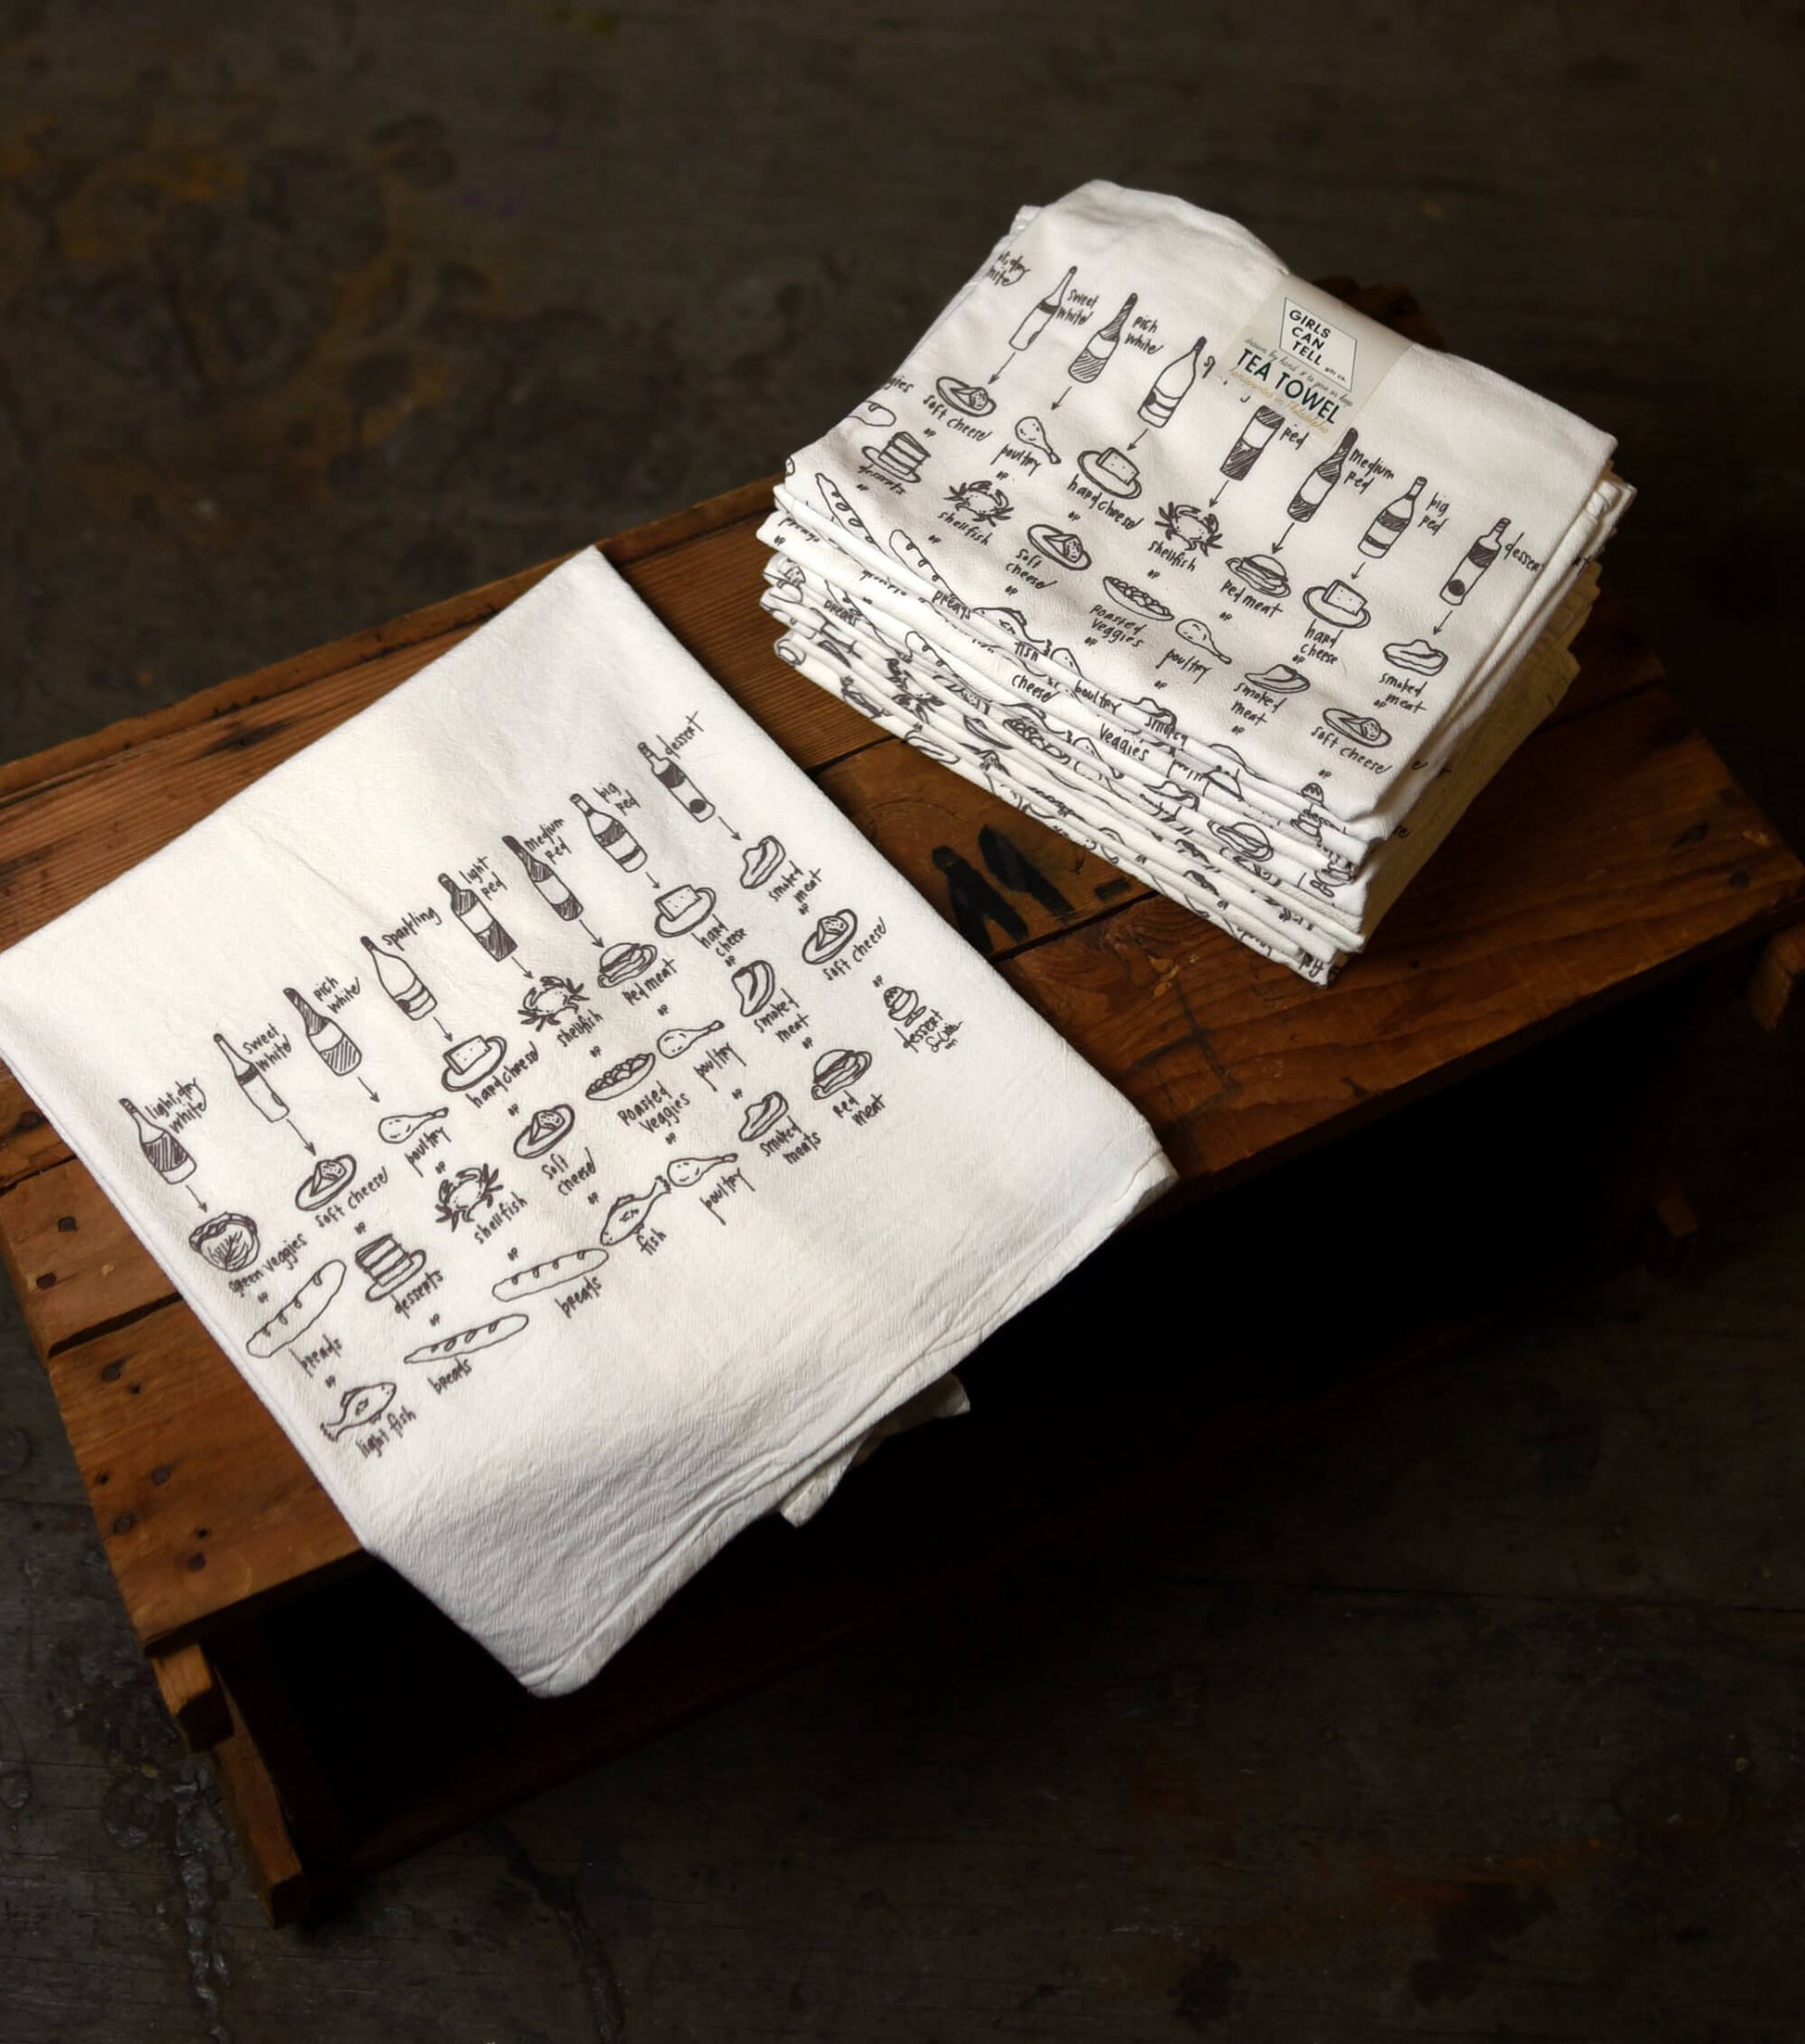 light, dry
white
green veggies
or
breads
or
light fish
sweet
white
soft cheese
or
desserts
or
breads
rich
white
poultry
or
shellfish
or
breads
sparkling
hard cheese
or
soft
cheese
or
fish
light
red
shellfish
or
roasted
veggies
or
poultry
medium
red
red meat
or
poultry
or
smoked
meats
big
red
hard
cheese
or
smoked
meat
or
red
meat
dessert
smoked
meat
or
soft cheese
or
dessert
GIRLS
CAN
TELL
gift co.
drawn by hand to give or keep
TEA TOWEL
handprinted in Philadelphia
white
veggies
sweet
white
soft cheese
or
desserts
or
rich
white
poultry
or
shellfish
or
hard cheese
or
soft
cheese
or
red
shellfish
or
roasted
veggies
or
poultry
medium
red
red meat
or
poultry
or
big
red
hard
cheese
or
smoked
meat
or
smoked
meat
or
soft cheese
or
breads
fish
cheese
poultry
veggies